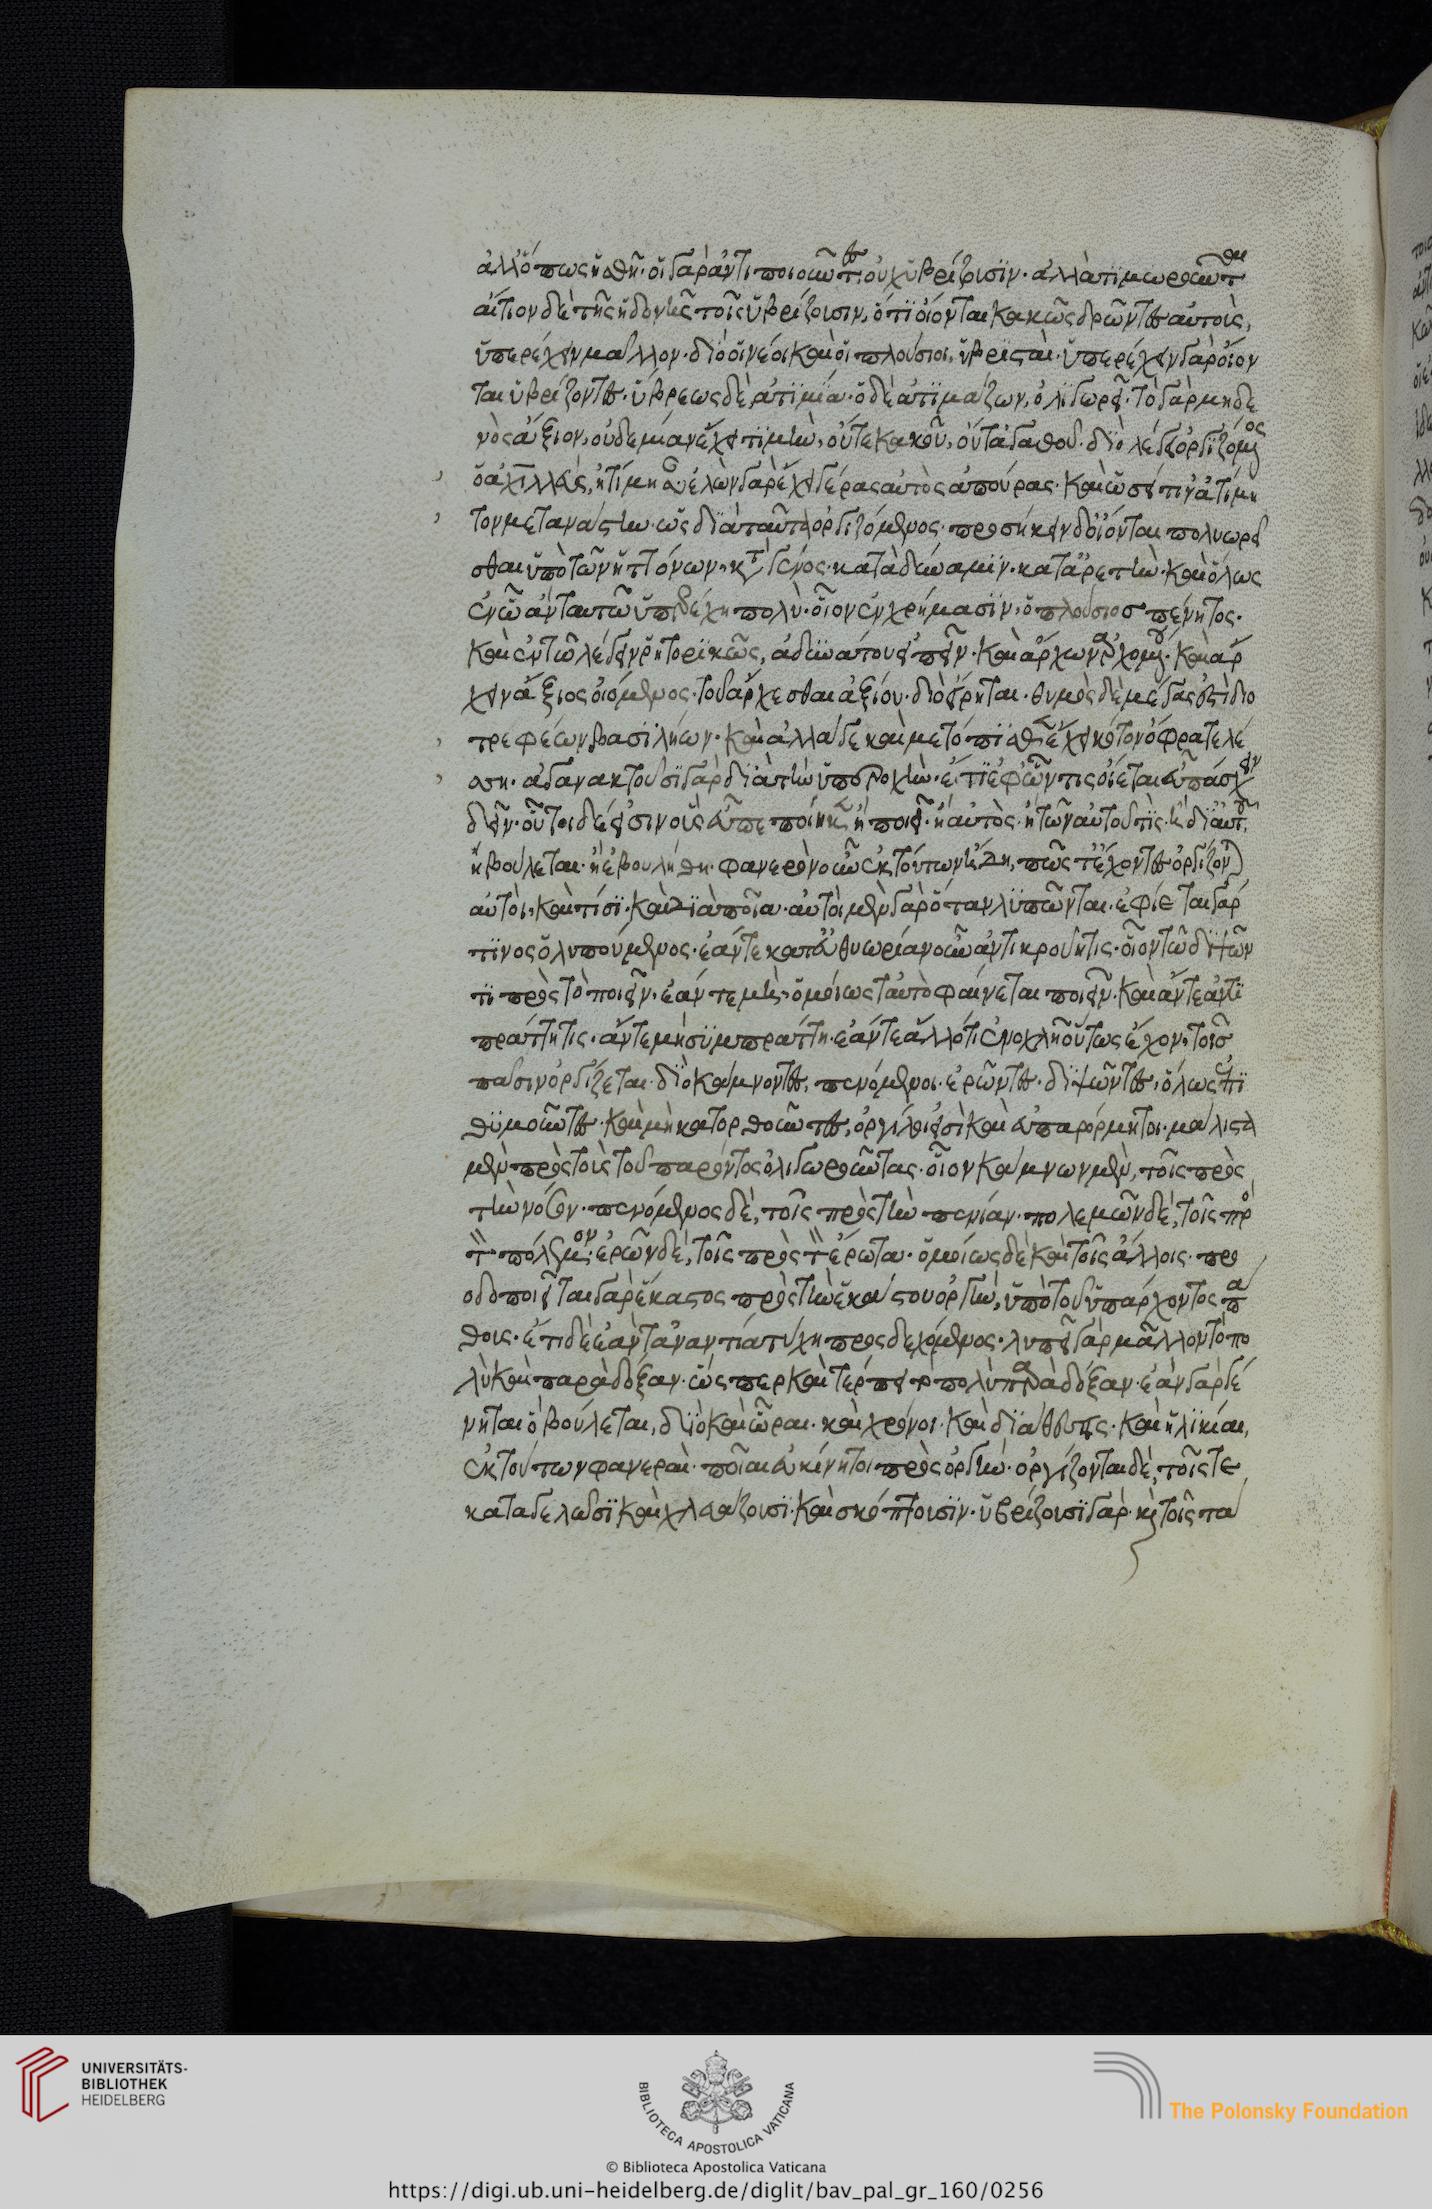 ἀλλ' ὅπως ἡσθῇ· οἱ γὰρ ἀντιποιοῦντες, οὐχ ὑβρίζουσιν· ἀλλὰ τιμωροῦνται
αἴτιον δὲ τῆς ἡδονῆς τοῖς ὑβρίζουσιν, ὅτι οἴονται κακῶς δρῶντες αὐτοὶς,
ὑπερέχειν μᾶλλον· διὸ οἱ νέοι καὶ οἱ πλούσιοι, ὑβρισταί· ὑπερέχειν γὰρ οἴον
ται ὑβρίζοντες· ὕβρεως δὲ, ἀτιμία· ὁ δὲ ἀτιμάζων, ὀλιγωρεῖ· τὸ γὰρ μηδε
νὸς ἄξιον, οὐδεμίαν ἔχει τιμὴν, οὔτε κακοῦ, οὔτ' ἀγαθοῦ· διὸ λέγει ὀργιζόμενος
ὁ ἀχιλλεὺς, ἠτίμησεν ἑλὼν γὰρ ἔχει γέρας αὐτὸς ἀπούρας· καὶ ὡσεί τιν' ἀτίμη
τον μετανάστην· ὡς διὰ ταῦτα ὀργιζόμενος· προσήκειν δ' οἴονται πολυωρεῖ
σθαι ὑπὸ τῶν ἡττόνων· κατὰ γένος· κατὰ δύναμιν· κατ' ἀρετὴν· καὶ ὅλως
ἐν ᾧ ἂν ταυτῷ ὑπερέχῃ πολὺ· οἷον ἐν χρήμασιν, ὁ πλούσιος πένητος·
καὶ ἐν τῷ λέγειν ῥητορικῶς, ἀδυνάτου εἰπεῖν· καὶ ἄρχων ἀρχομένου· καὶ ἄρ
χειν ἄξιος οἰόμενος· τοῦ ἄρχεσθαι ἀξίου· διὸ εἴρηται· θυμὸς δὲ μέγας ἐστὶ διο
τρεφέων βασιλήων· καὶ ἀλλά γε καὶ μετόπισθεν ἔχει κότον ὄφρα τελέ
σῃ· ἀγανακτοῦσι γὰρ διὰ τὴν ὑπεροχὴν· ἔτι ἐφ' ὧν τις οἴεται εὖ πάσχειν
δεῖν· οὗτοι δέ εἰσιν οὓς εὖ πεποίηκεν ἢ ποιεῖ· ἢ αὐτὸς· ἢ τῶν αὐτοῦ τις· ἢ δι' αὐτὸν
ἢ βούλεται· ἢ ἐβουλήθη· φανερὸν οὖν ἐκ τούτων ἤδη, πῶς τ' ἔχοντες ὀργίζονται
αὐτοὶ, καὶ τίσι· καὶ διὰ ποῖα· αὐτοὶ μὲν γὰρ ὅταν λυπῶνται· ἐφίεται γάρ
τινος ὁ λυπούμενος· ἐάν τε κατ' εὐθυωρίαν οὖν ἀντικρούῃ τις· οἷον τῷ διψῶν
τι πρὸς τὸ πιεῖν· ἐάν τε μὴ· ὁμοίως ταυτὸ φαίνεται ποιεῖν· καὶ ἄν τε ἀντι
πράττῃ τις· ἄν τε μὴ συμπράττῃ· ἐάν τε ἄλλό τι ἐνοχλῇ οὕτως ἔχον· τοῖς
πᾶσιν ὀργίζεται· διὸ κάμνοντες, πενόμενοι· ἐρῶντες· διψῶντες· ὅλως ἐπι
θυμοῦντες· καὶ μὴ κατορθοῦντες, ὀργίλοι εἰσὶ καὶ εὐπαρόρμητοι· μάλιστα
μὲν πρὸς τοὺς τοῦ παρόντος ὀλιγωροῦντας· οἷον κάμνων μὲν, τοῖς πρὸς
τὴν νόσον· πενόμενος δὲ, τοῖς πρὸς τὴν πενίαν· πολεμῶν δὲ, τοῖς πρὸ
τὸν πόλεμον· ἐρῶν δὲ, τοῖς πρὸς τὸν ἔρωτα· ὁμοίως δὲ καὶ τοῖς ἄλλοις· προ
οδοποιεῖται γὰρ ἕκαστος πρὸς τὴν ἑκάστου ὀργὴν, ὑπὸ τοῦ ὑπάρχοντος πά
θους· ἔτι δὲ ἐὰν τἀναντία τύχῃ προσδεχόμενος· λυπεῖ γὰρ μᾶλλον τὸ πο
λὺ καὶ παρὰ δόξαν· ὥσπερ καὶ τέρπει τὸ πολὺ παρὰ δόξαν· ἐὰν γὰρ γέ
νηται ὃ βούλεται, διὸ καὶ ὧραι· καὶ χρόνοι· καὶ διαθέσεις· καὶ ἡλικίαι,
ἐκ τούτων φανεραὶ· ποῖαι εὐκίνητοι πρὸς ὀργὴν· ὀργίζονται δὲ, τοῖς τε
καταγελῶσι καὶ χλευάζουσι· καὶ σκώπτουσιν· ὑβρίζουσι γάρ· καὶ τοῖς τα
UNIVERSITÄTS-
BIBLIOTHEK
HEIDELBERG
BIBLIOTECA APOSTOLICA VATICANA
The Polonsky Foundation
© Biblioteca Apostolica Vaticana
https://digi.ub.uni-heidelberg.de/diglit/bav_pal_gr_160/0256